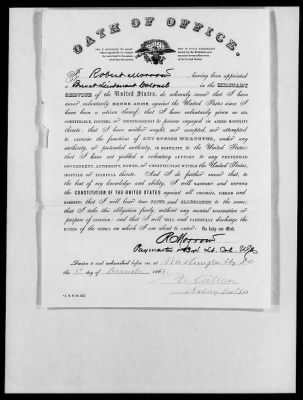 OATH OF OFFICE.
I, Robert Morrow, having been appointed
Brevet Lieutenant Colonel in the VOLUNTEER
SERVICE of the United States, do solemnly swear that I have
never voluntarily BORNE ARMS against the United States since I
have been a citizen thereof; that I have voluntarily given no AID,
COUNTENANCE, COUNSEL, or ENCOURAGEMENT to persons engaged in ARMED HOSTILITY
thereto; that I have neither sought, nor accepted, nor attempted
to exercise the functions of ANY OFFICE WHATEVER, under any
authority, or pretended authority, in HOSTILITY to the United States; that
I have not yielded a voluntary SUPPORT to any PRETENDED
GOVERNMENT, AUTHORITY, POWER, or CONSTITUTION WITHIN the UNITED STATES,
HOSTILE or INIMICAL thereto. And I do further swear that, to
the best of my knowledge and ability, I will SUPPORT and DEFEND
the CONSTITUTION OF THE UNITED STATES against all ENEMIES, FOREIGN AND
DOMESTIC; that I will bear true FAITH and ALLEGIANCE to the same;
that I take this obligation freely, without any mental reservation or
purpose of evasion; and that I will WELL and FAITHFULLY discharge the
duties of the office on which I am about to enter: So help me God.
R Morrow
Paymaster & Bvt. Lt. Col.
Sworn to and subscribed before me, at Washington City, D.C.
the day of December 186